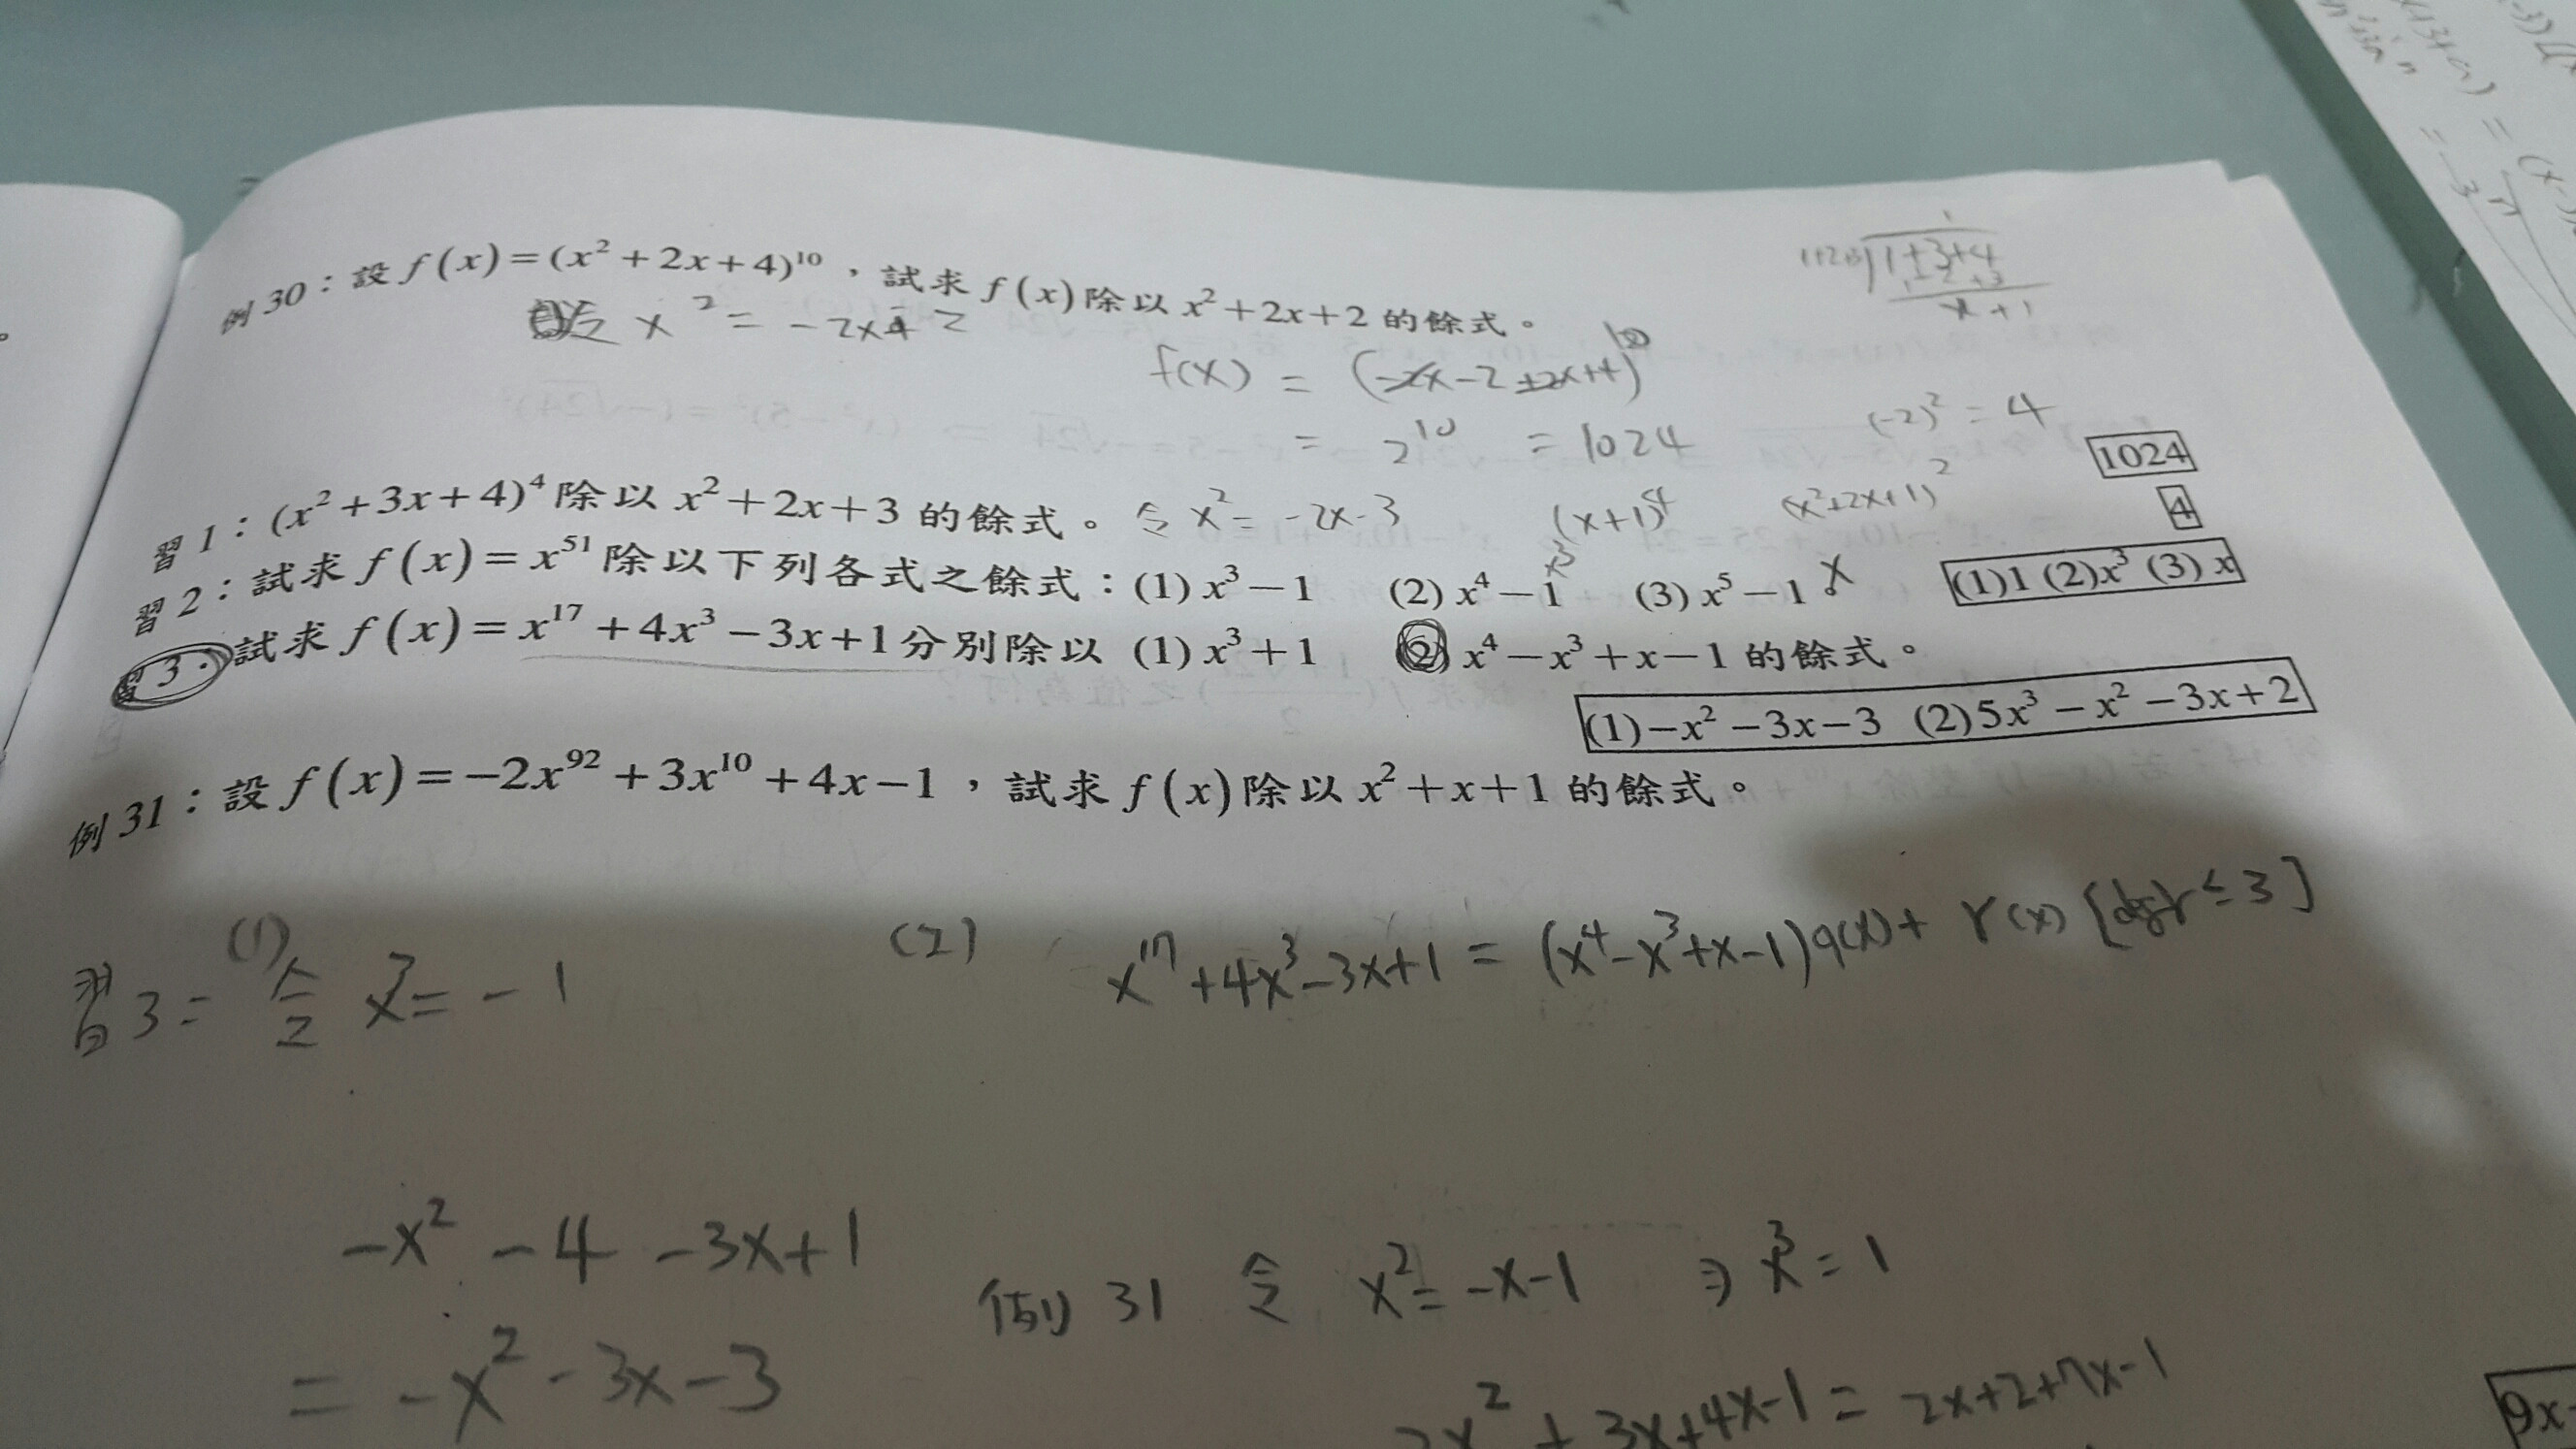 例30：設 f(x)=(x²+2x+4)¹⁰，試求 f(x)除以 x²+2x+2 的餘式。
令 x² = -2x-2
1+3+4
x+1
f(x) = (-2x-2+2x+4)¹⁰
= 2¹⁰ = 1024
(-2)² = 4
1024
習1：(x²+3x+4)⁴除以 x²+2x+3 的餘式。
令 x² = -2x-3
(x+1)⁴
(x²+2x+1)²
4
習2：試求 f(x)=x⁵¹除以下列各式之餘式：(1) x³-1 (2) x⁴-1 (3) x⁵-1。
x³
x
(1)1 (2)x³ (3) x
習3：試求 f(x)=x¹⁷+4x³-3x+1分別除以 (1) x³+1 (2) x⁴-x³+x-1 的餘式。
(1)-x²-3x-3 (2)5x³-x²-3x+2
例31：設 f(x)=-2x⁹²+3x¹⁰+4x-1，試求 f(x)除以 x²+x+1 的餘式。
習3= (1) 令 x³= -1
(2) x¹⁷+4x³-3x+1 = (x⁴-x³+x-1)q(x)+ r(x) [degr ≤ 3]
-x² -4 -3x+1
= -x² -3x-3
例31 令 x²= -x-1 ⇒ x³=1
2x² + 3x+4x-1 = 2x+2+7x-1
9x